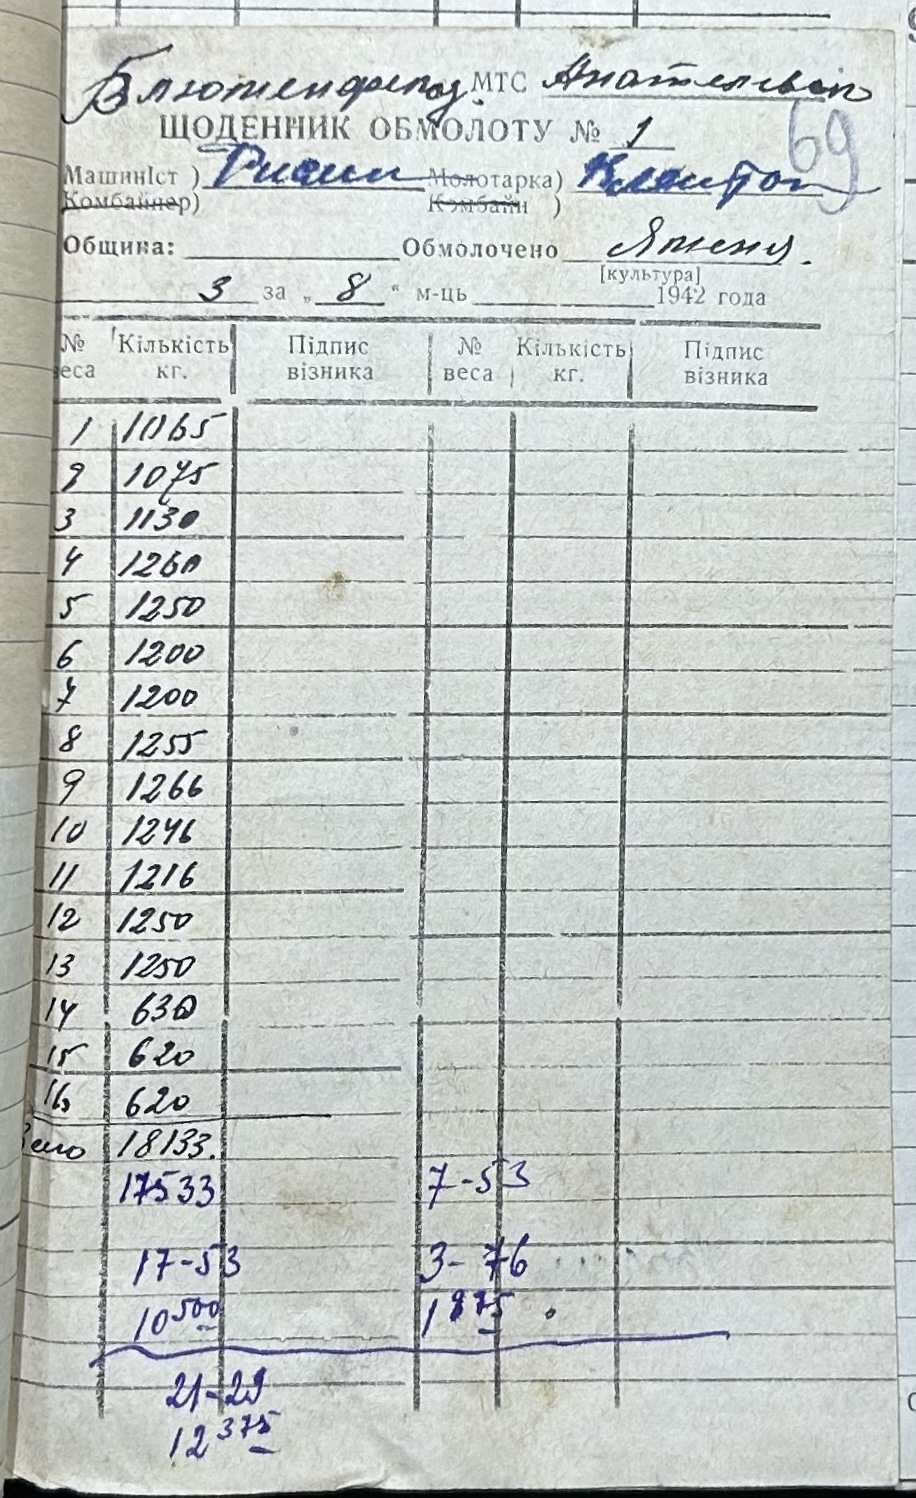 Блюменфельд. МТС
ЩОДЕННИК ОБМОЛОТУ № 1
69
Машиніст ) Молотарка)
Комбайнер) Комбайн )
Община: Обмолочено Ячменя.
[культура]
3 за „ 8 “ м-ць 1942 года
№ веса Кількість кг. Підпис візника № веса Кількість кг. Підпис візника
1 1065
2 1075
3 1130
4 1260
5 1250
6 1200
7 1200
8 1255
9 1266
10 1246
11 1216
12 1250
13 1250
14 630
15 620
16 620
18133.
17533 7-53
17-53 3-76
10500 1875
21-29
12375